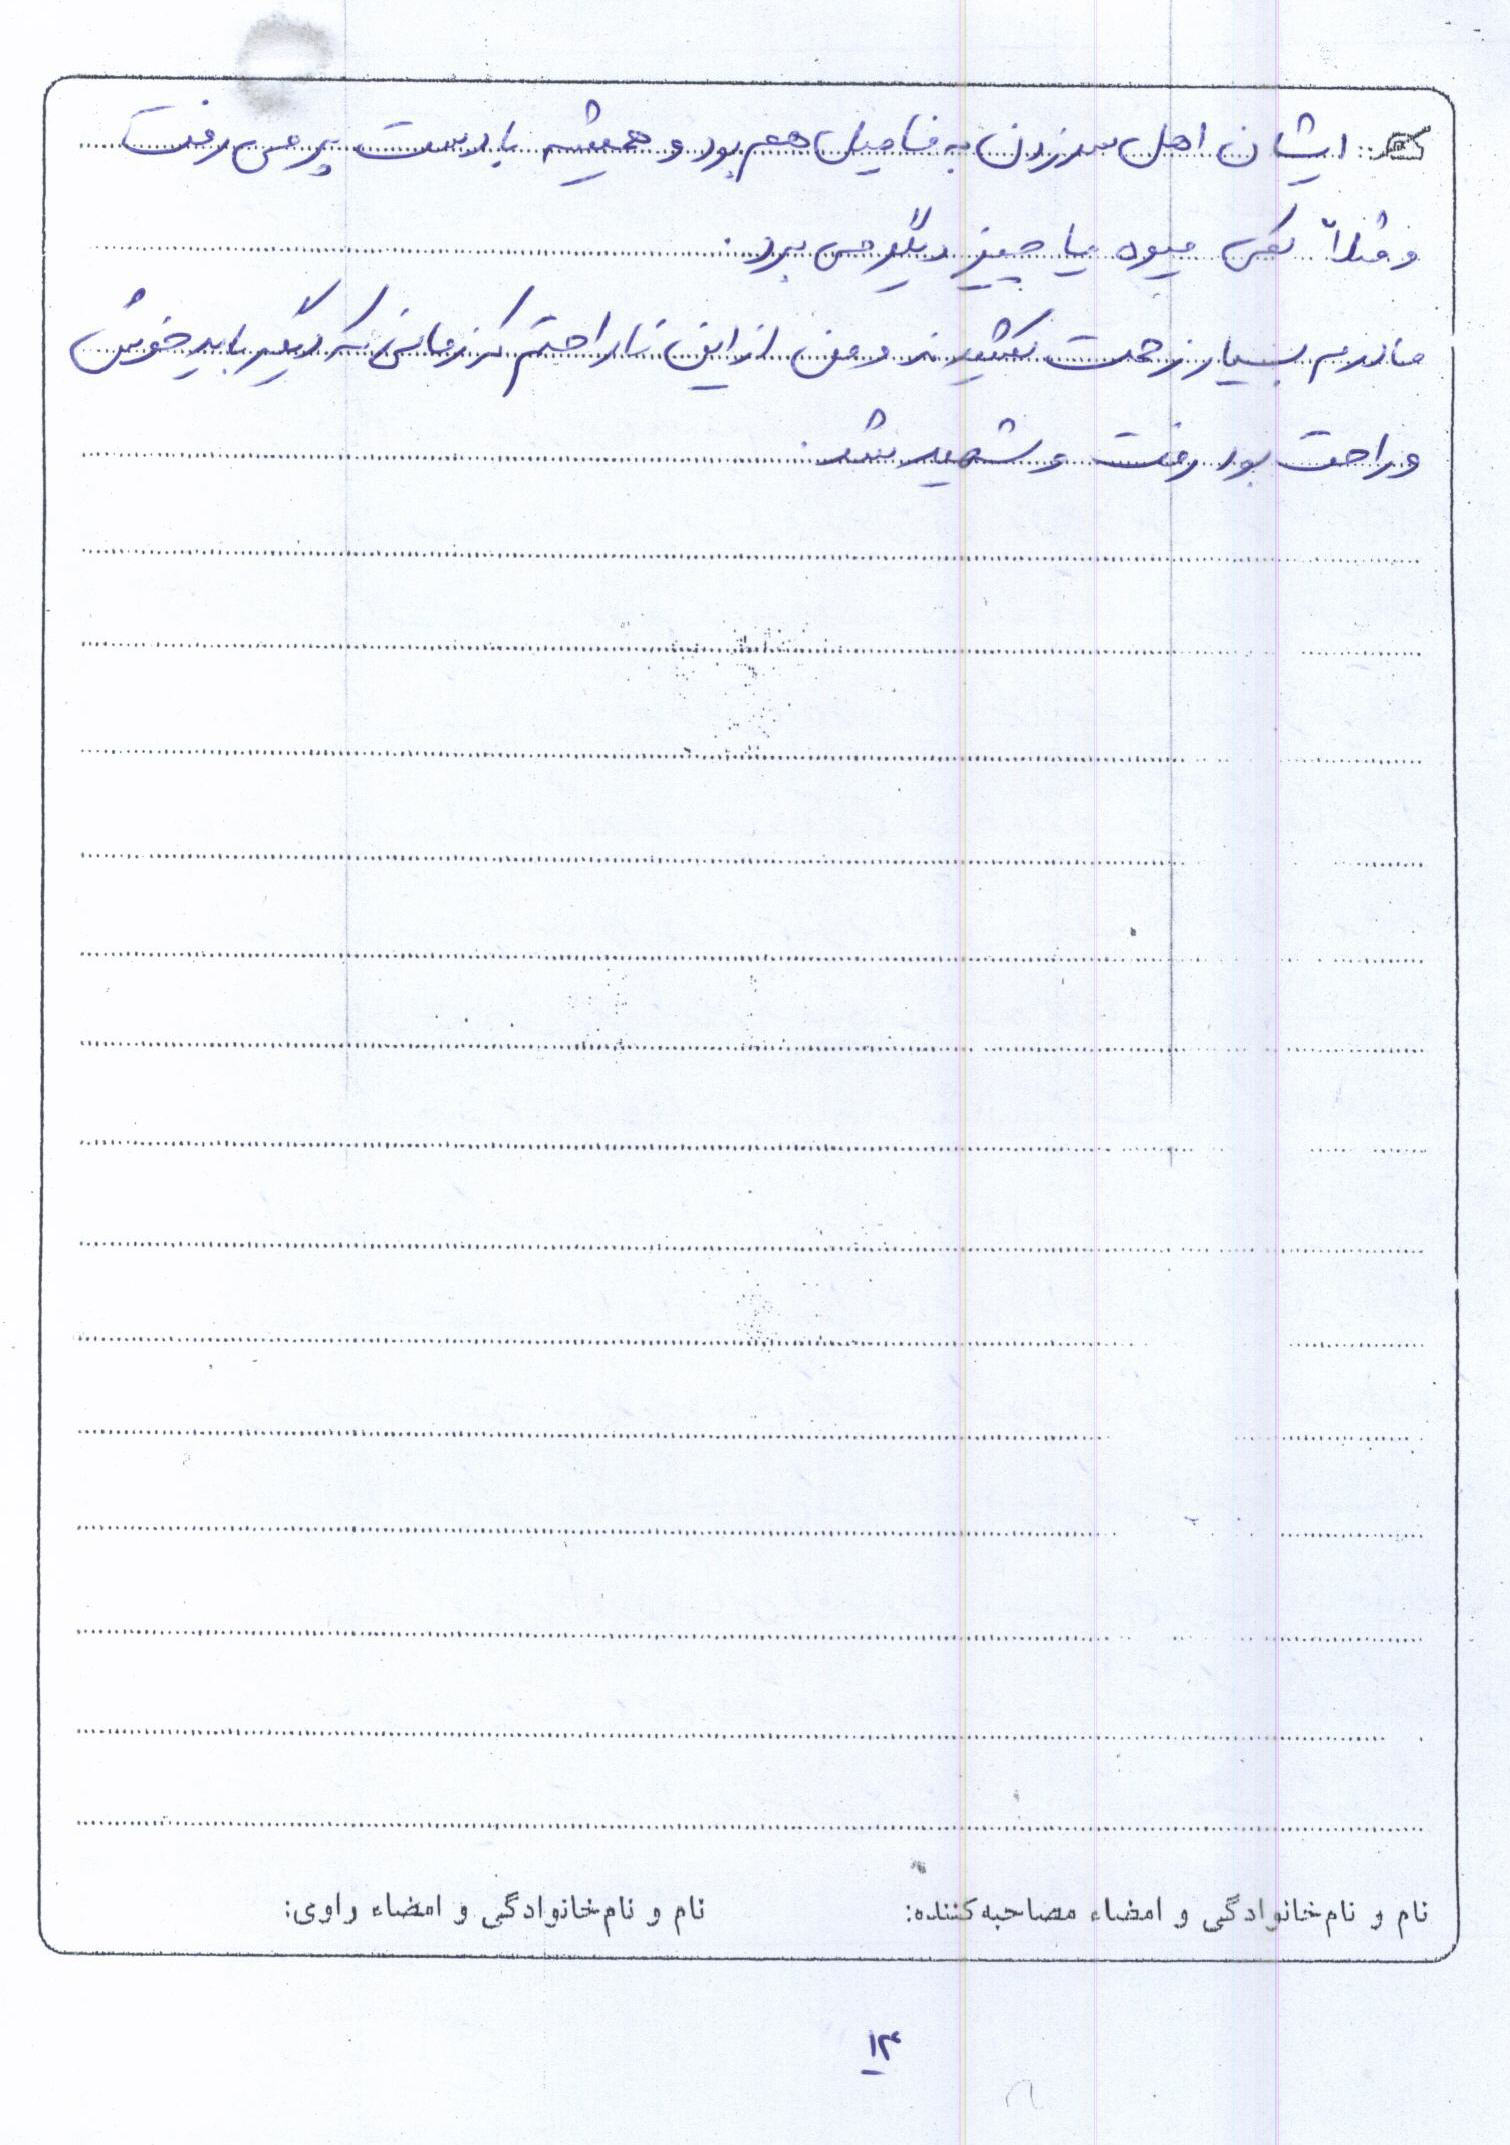 ایشان اهل سر زدن به فامیل هم بود و همیشه با دست پر می رفت
و مثلاً کمی میوه یا چیز دیگر می برد.
مادرم بسیار زحمت کشیدند و من از این ناراحتم که زمانی که دیگر باید خوش
و راحت بود رفت و شهید شد.
نام و نام خانوادگی و امضاء مصاحبه کننده: نام و نام خانوادگی و امضاء راوی:
۱۳